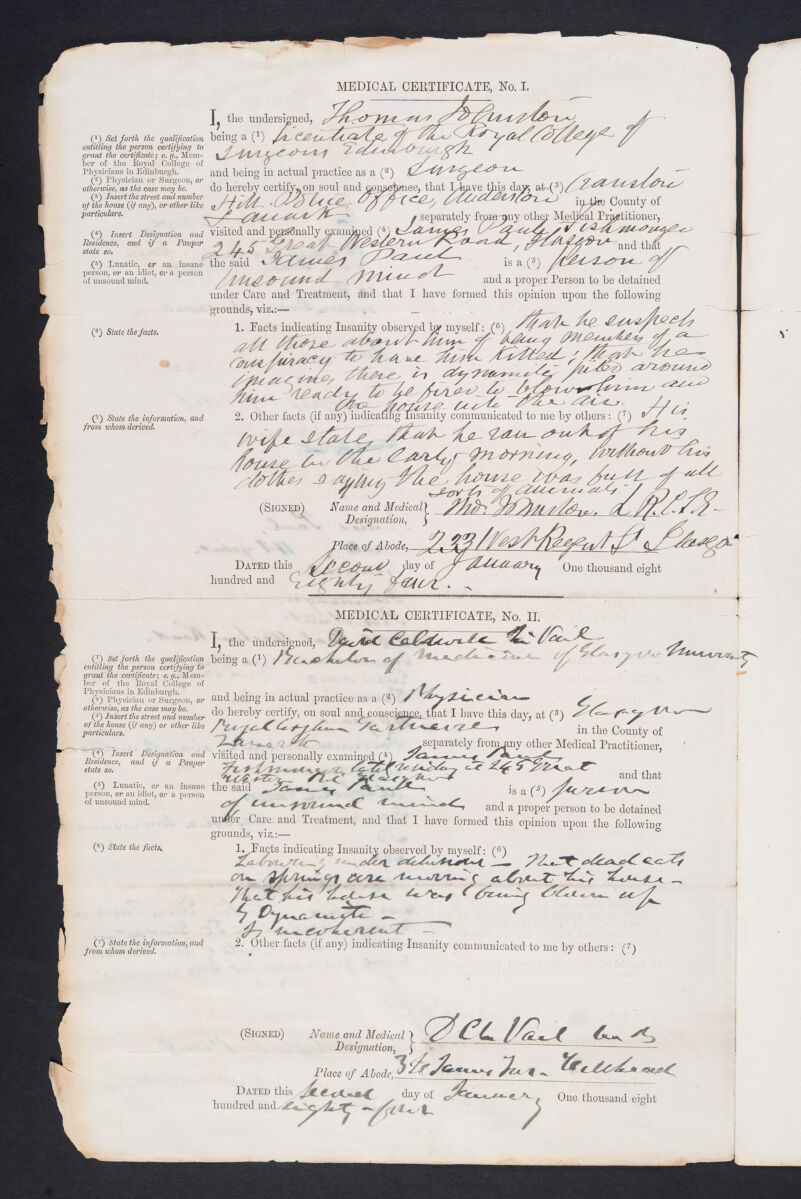 MEDICAL CERTIFICATE, No. I.
I, the undersigned, Thomas Johnston
(¹) Set forth the qualification entitling the person certifying to grant the certificate; e. g., Member of the Royal College of Physicians in Edinburgh.
being a (¹) Licentiate of the Royal College of
Surgeons Edinburgh
(²) Physician or Surgeon, or otherwise, as the case may be.
and being in actual practice as a (²) Surgeon
(³) Insert the street and number of the house (if any), or other like particulars.
do hereby certify, on soul and conscience, that I have this day, at (³) Cranston
Hill Police Office, Anderston in the County of
Lanark separately from any other Medical Practitioner,
(⁴) Insert Designation and Residence, and if a Pauper state so.
visited and personally examined (⁴) James Paul, Fishmonger
245 Great Western Road, Glasgow and that
(⁵) Lunatic, or an insane person, or an idiot, or a person of unsound mind.
the said James Paul is a (⁵) person of
unsound mind and a proper Person to be detained
under Care and Treatment, and that I have formed this opinion upon the following
grounds, viz.:—
(⁶) State the facts.
1. Facts indicating Insanity observed by myself: (⁶) that he suspects
all those about him of being members of a
conspiracy to have him killed; that he
imagines there is dynamite piled around
him ready to be fired to blow him and
the house into the air.
(⁷) State the information, and from whom derived.
2. Other facts (if any) indicating Insanity communicated to me by others: (⁷) His
wife states that he ran out of his
house in the early morning, without his
clothes saying the house was full of all
sorts of animals.
(SIGNED) Name and Medical Designation, Thos. Johnston. L.R.C.S.E.
Place of Abode, 233 West Regent St Glasgow
DATED this Second day of January One thousand eight
hundred and Eighty four.
MEDICAL CERTIFICATE, No. II.
I, the undersigned, David Caldwell Mc Vail
(¹) Set forth the qualification entitling the person certifying to grant the certificate; e. g., Member of the Royal College of Physicians in Edinburgh.
being a (¹) Bachelor of Medicine of Glasgow University
(²) Physician or Surgeon, or otherwise, as the case may be.
and being in actual practice as a (²) Physician
(³) Insert the street and number of the house (if any) or other like particulars.
do hereby certify, on soul and conscience, that I have this day, at (³) Glasgow
Royal Asylum Gartnavel in the County of
Lanark separately from any other Medical Practitioner,
(⁴) Insert Designation and Residence, and if a Pauper state so.
visited and personally examined (⁴) James Paul
Fishmonger lately residing at 245 Great
Western Rd. Glasgow and that
(⁵) Lunatic, or an insane person, or an idiot, or a person of unsound mind.
the said James Paul is a (⁵) person
of unsound mind and a proper person to be detained
under Care and Treatment, and that I have formed this opinion upon the following
grounds, viz.:—
(⁶) State the facts.
1. Facts indicating Insanity observed by myself: (⁶)
Labouring under delusions — That dead cats
on springs are moving about his house —
That his house was being blown up
by Dynamite —
Is incoherent —
(⁷) State the information, and from whom derived.
2. Other facts (if any) indicating Insanity communicated to me by others: (⁷)
(SIGNED) Name and Medical Designation, D C Mc Vail M B
Place of Abode, 3 St James Ter. Hillhead
DATED this Second day of January One thousand eight
hundred and eighty-four